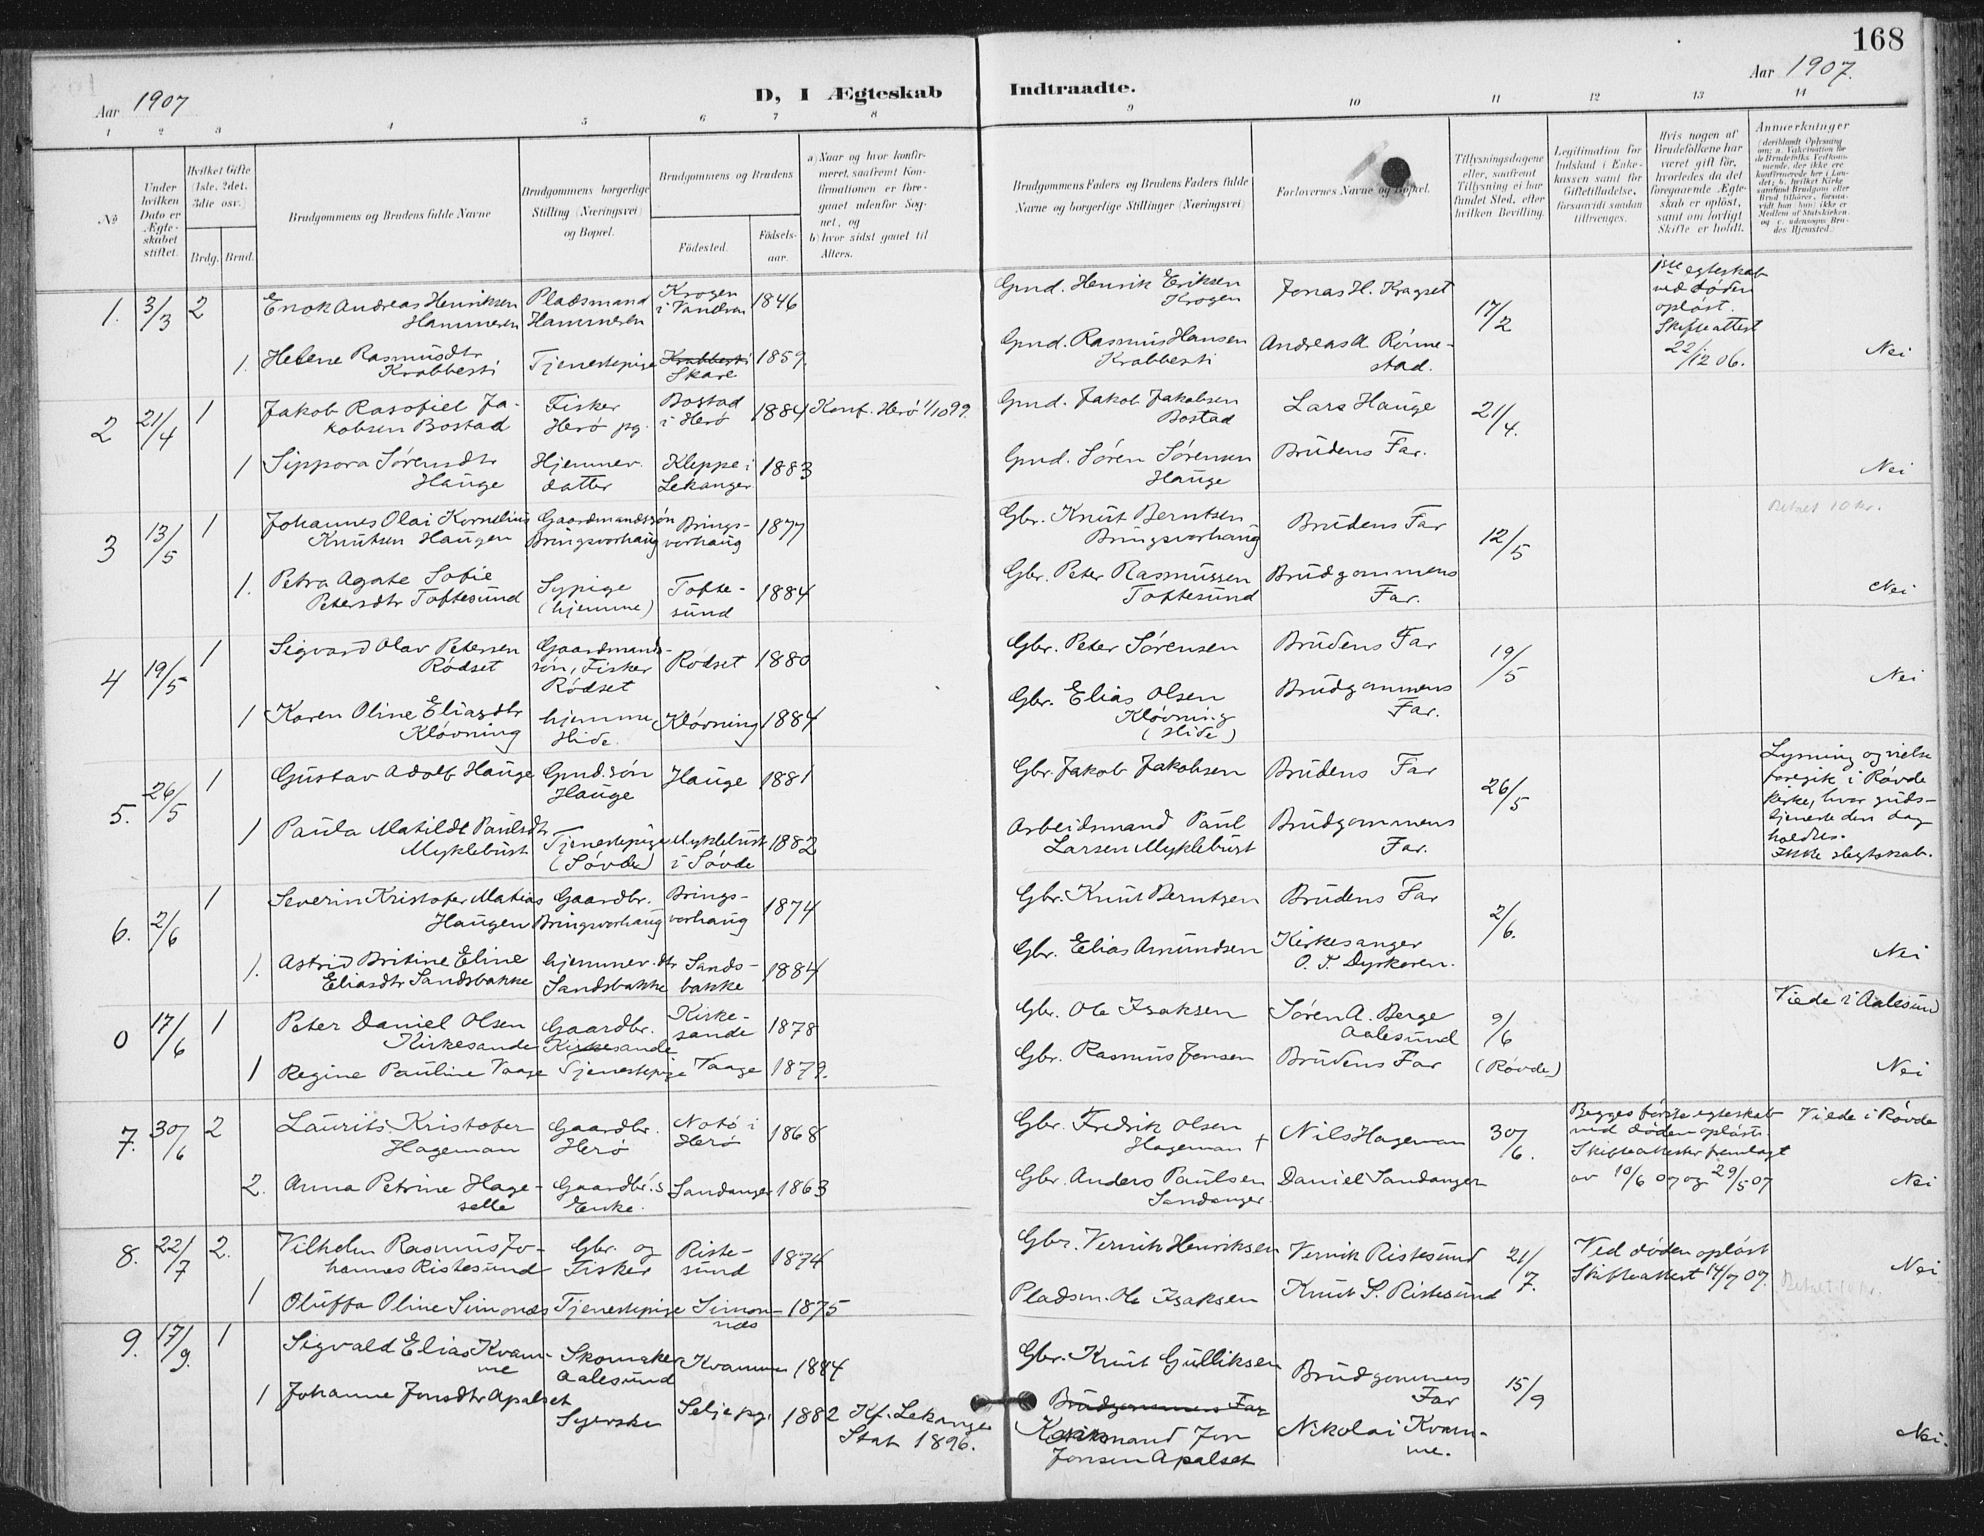 168
Aar 1907
D, I Ægteskab Indtraadte.
Aar 1907.
1 2 3 4 5 6 7 8 9 10 11 12 13 14
No
Under hvilken Dato er Ægteskabet stiftet.
Hvilket Gifte (1ste, 2det, 3die osv.)
Brdg. Brud.
Brudgommens og Brudens fulde Navne
Brudgommens borgerlige Stilling (Næringsvei) og Bopæl.
Brudgommens og Brudens
Fødested.
Fødselsaar.
a) Naar og hvor konfirmeret, saafremt Konfirmationen er foregaaet udenfor Sognet, og
b) hvor sidst gaaet til Alters.
Brudgommens Faders og Brudens Faders fulde Navne og borgerlige Stillinger (Næringsvei)
Forlovernes Navne og Bopæl.
Tillysningsdagene eller, saafremt Tillysning ei har fundet Sted, efter hvilken Bevilling.
Legitimation for Indskud i Enkekassen samt for Giftetilladelse, forsaavidt saadan tiltrænges.
Hvis nogen af Brudefolkene har været gift før, hvorledes da det foregaaende Ægteskab er opløst, samt om lovligt Skifte er holdt.
Anmerkninger
1. 3/3 2 Enok Andreas Henriksen Hammeren Pladsmand Hammeren Krogen i Vandven 1846 Gmd. Henrik Eriksen Krogen Jonas H. Kragset 17/2 1ste egteskab ved døden opløst. Skifteattest 22/12 06.
1. Helene Rasmusdtr Krabbesti Tjenestepige Krabbesti Skare 1859. Gmd. Rasmus Hansen Krabbesti Andreas A Rønnestad. Nei
2 21/4 1 Jakob Rasofiel Jakobsen Bostad Fisker Herø pg. Bostad i Herø 1884 Konf. Herø 1/10 99. Gmd. Jakob Jakobsen Bostad Lars Hauge 21/4.
1 Sippora Sørensdtr Hauge Hjemmev. datter Kleppe i Lekanger 1883 Gmd. Søren Sørensen Hauge Brudens Far. Nei
3 13/5 1 Johannes Olai Kornelius Knutsen Haugen Gaardmandssøn Bringsvorhaug Bringsvorhaug 1877 Gbr. Knut Berntsen Bringsvorhaug Brudens Far 12/5 Betalt 10 kr.
1. Petra Agate Sofie Petersdtr Toftesund Sypige (hjemme) Toftesund 1884 Gbr. Peter Rasmussen Toftesund Brudgommens Far. Nei
4 19/5 1 Sigvard Olav Petersen Rødset Gaardmandssøn, Fisker Rødset Rødset 1880 Gbr. Peter Sørensen Brudens Far 19/5 Nei
1 Karen Oline Eliasdtr Kløvning hjemme, Hide. Kløvning 1884 Gbr. Elias Olsen Kløvning (Hide) Brudgommens Far.
5. 26/5 1 Gustav Adolb Hauge Gmd.søn Hauge Hauge 1881 Gbr. Jakob Jakobsen Brudens Far 26/5 Lysning og vielse foregik i Røvde kirke, hvor gudstjeneste den dag holdtes. Ikke slegtskab.
1 Paula Matilde Paulsdtr Myklebust Tjenestepige (Søvde) Myklebust i Søvde 1882 Arbeidsmand Paul Larsen Myklebust Brudgommens Far.
6. 2/6 1 Severin Kristofer Matias Haugen Gaardbr. Bringsvorhaug Bringsvorhaug 1874 Gbr. Knut Berntsen Brudens Far 2/6.
1. Astrid Britine Eline Eliasdtr Sandsbakke hjemmev. dtr Sandsbakke Sandsbakke 1884 Gbr. Elias Amundsen Kirkesanger O. T. Dyrkoren. Nei
0 17/6 1 Peter Daniel Olsen Kirkesande Gaardbr. Kirkesande Kirkesande 1878 Gbr. Ole Isaksen Søren A. Berge Aalesund 9/6 Viede i Aalesund
1 Regine Pauline Vaage Tjenestepige Vaage 1879. Gbr. Rasmus Jensen Brudens Far (Røvde) Nei
7. 30/6 2 Laurits Kristofer Hageman Gaardbr. Herø Notø i Herø 1868 Gbr. Fredrik Olsen Hageman + Nils Hageman 30/6. Begges første egteskab ved døden opløst. Skifteattester fremlagt av 10/6 07 og 29/5 07 Viede i Røvde
2. Anna Petrine Hageselle Gaardbr.s Enke. Sandanger 1863 Gbr. Anders Paulsen Sandanger. Daniel Sandanger Nei
8. 22/7 2. Vilhelm Rasmus Johannes Ristesund Gbr. og Fisker Ristesund 1874 Gbr. Vernik Henriksen Vernik Ristesund 21/7. Ved døden opløst Skifteattest 14/7 07. Nei Betalt 10 kr.
1 Oluffa Oline Simonnæs Tjenestepige Simonnæs 1875 Pladsm. Ole Isaksen Knut S. Ristesund
9. 17/9. 1 Sigvald Elias Kvamme Skomaker Aalesund Kvamme 1884 Gbr. Knut Gulliksen Brudgommens Far 15/9
1 Johanne Jonsdtr Apalset Syerske Selje pg. 1882 Kf. Lekanger Stat 1896. Brudgommens Far mand Jon Jonsen Apalset Nikolai Kvamme. Nei.